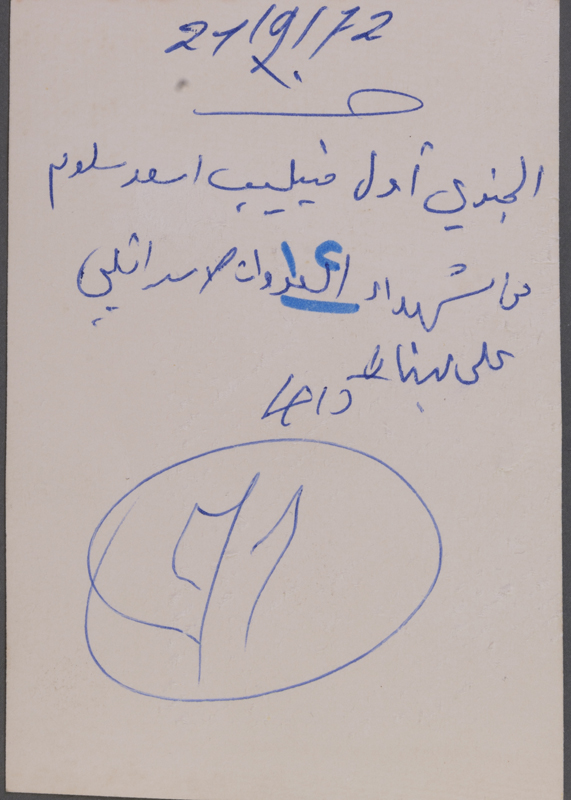 21/9/72
الجندي أول فيليب اسعد سلوم
من شهداء العدوان الاسرائيلي
١٤
على لبنان